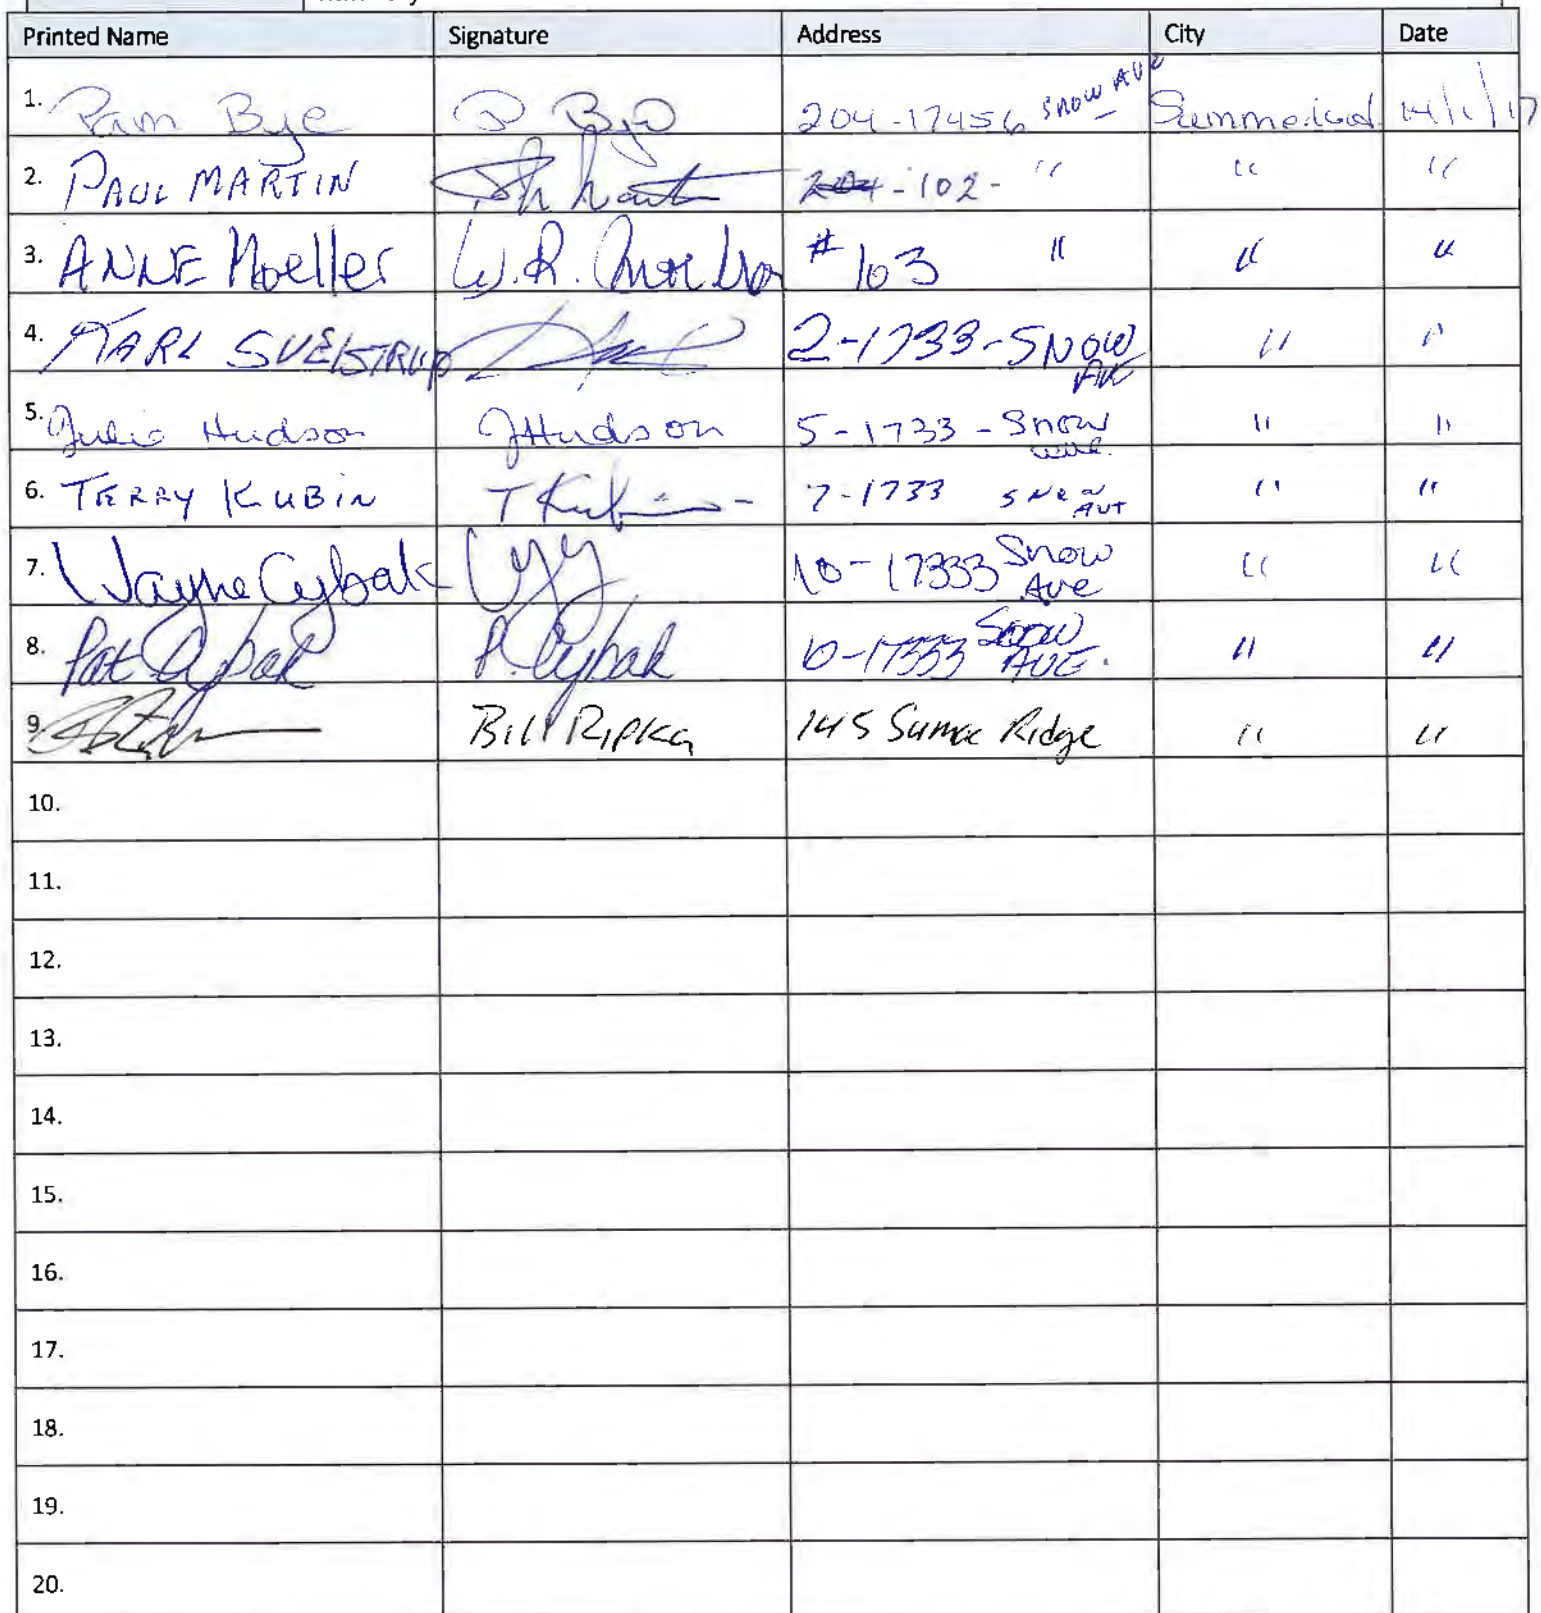 Printed Name Signature Address City Date
1. Pam Bye P Bye 204-17456 Snow Ave Summerland 14/1/17
2. PAUL MARTIN 204 -102- " " "
3. ANNE Moeller W.R. # 103 " " "
4. KARL SVEISTRUP 2-1733-SNOW AVE " "
5. Julie Hudson JHudson 5-1733 - Snow ave. " "
6. TERRY KUBIN T Kubin 7-1733 SNOW AVE " "
7. Wayne Cybak 10-17333 Snow Ave " "
8. Pat Cybak P. Cybak 10-17333 Snow AVE. " "
9. Bill Ripka 145 Sumac Ridge " "
10.
11.
12.
13.
14.
15.
16.
17.
18.
19.
20.